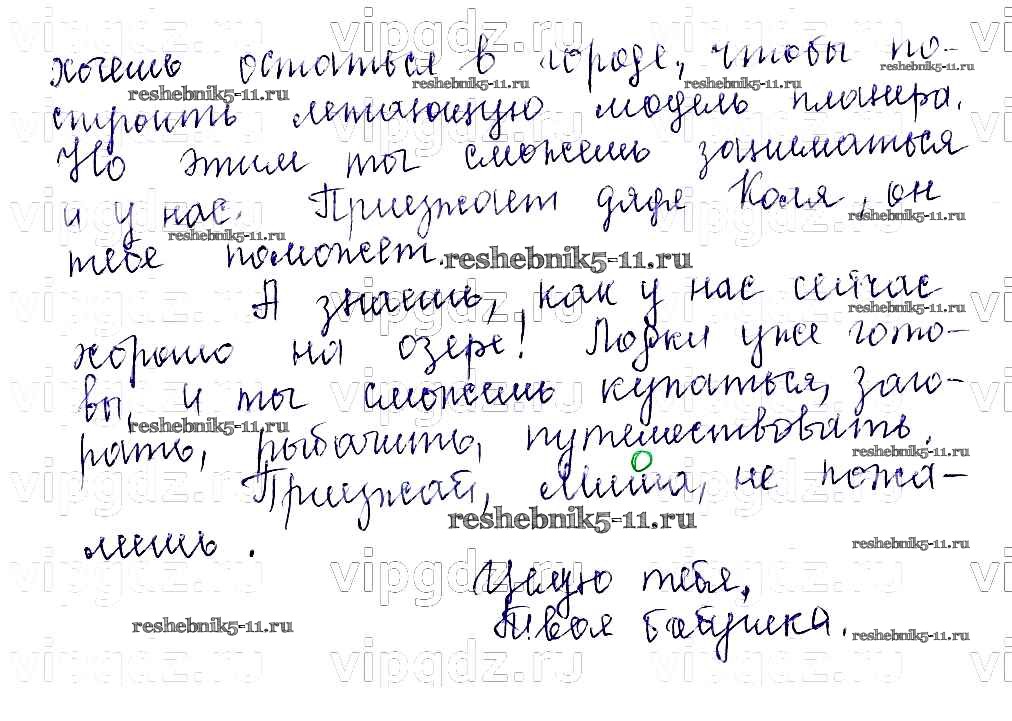 хочешь остаться в городе, чтобы по-
строить летающую модель планера.
Но этим ты сможешь заниматься
и у нас. Приезжает дядя Коля, он
тебе поможет.
А знаешь, как у нас сейчас
хорошо на озере! Лодки уже гото-
вы, и ты сможешь купаться, заго-
рать, рыбачить, путешествовать.
Приезжай, Миша, не пожа-
леешь.
Целую тебя,
Твоя бабушка.
vipgdz.ru
reshebnik5-11.ru